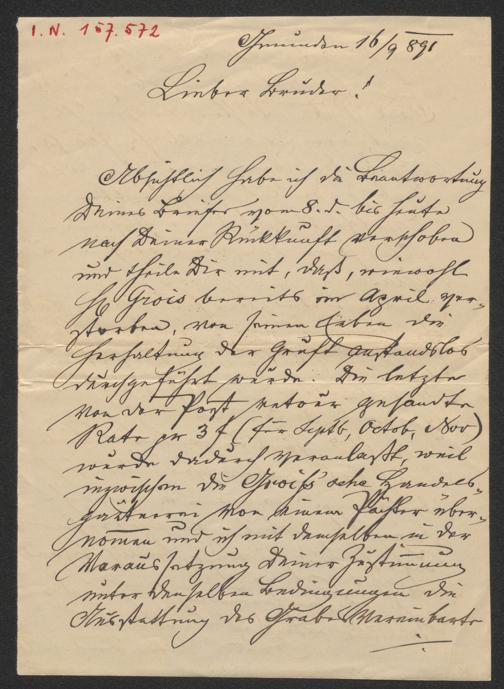 I. N. 157.572
Gmunden 16/9 891
Lieber Bruder!
Absichtlich habe ich die Beantwortung
Deines Briefes vom 8. d. bis heute
nach Deiner Rückkunft verschoben
und theile Dir mit, daß, wiewohl
H. Grois bereits im April ver-
storben, von seinen Erben die
Herhaltung der Gruft anstandslos
durchgeführt wurde. Die letzte
von der Post retour gesandte
Rate pr 3 f (für Septb, Octob, Nov)
wurde dadurch veranlaßt, weil
inzwischen die Grois'sche Handels-
gärtnerei von einem Pächter über-
nommen und ich mit demselben in der
Voraussetzung Deiner Zustimmung
unter denselben Bedingungen die
Ausstattung des Grabes vereinbarte